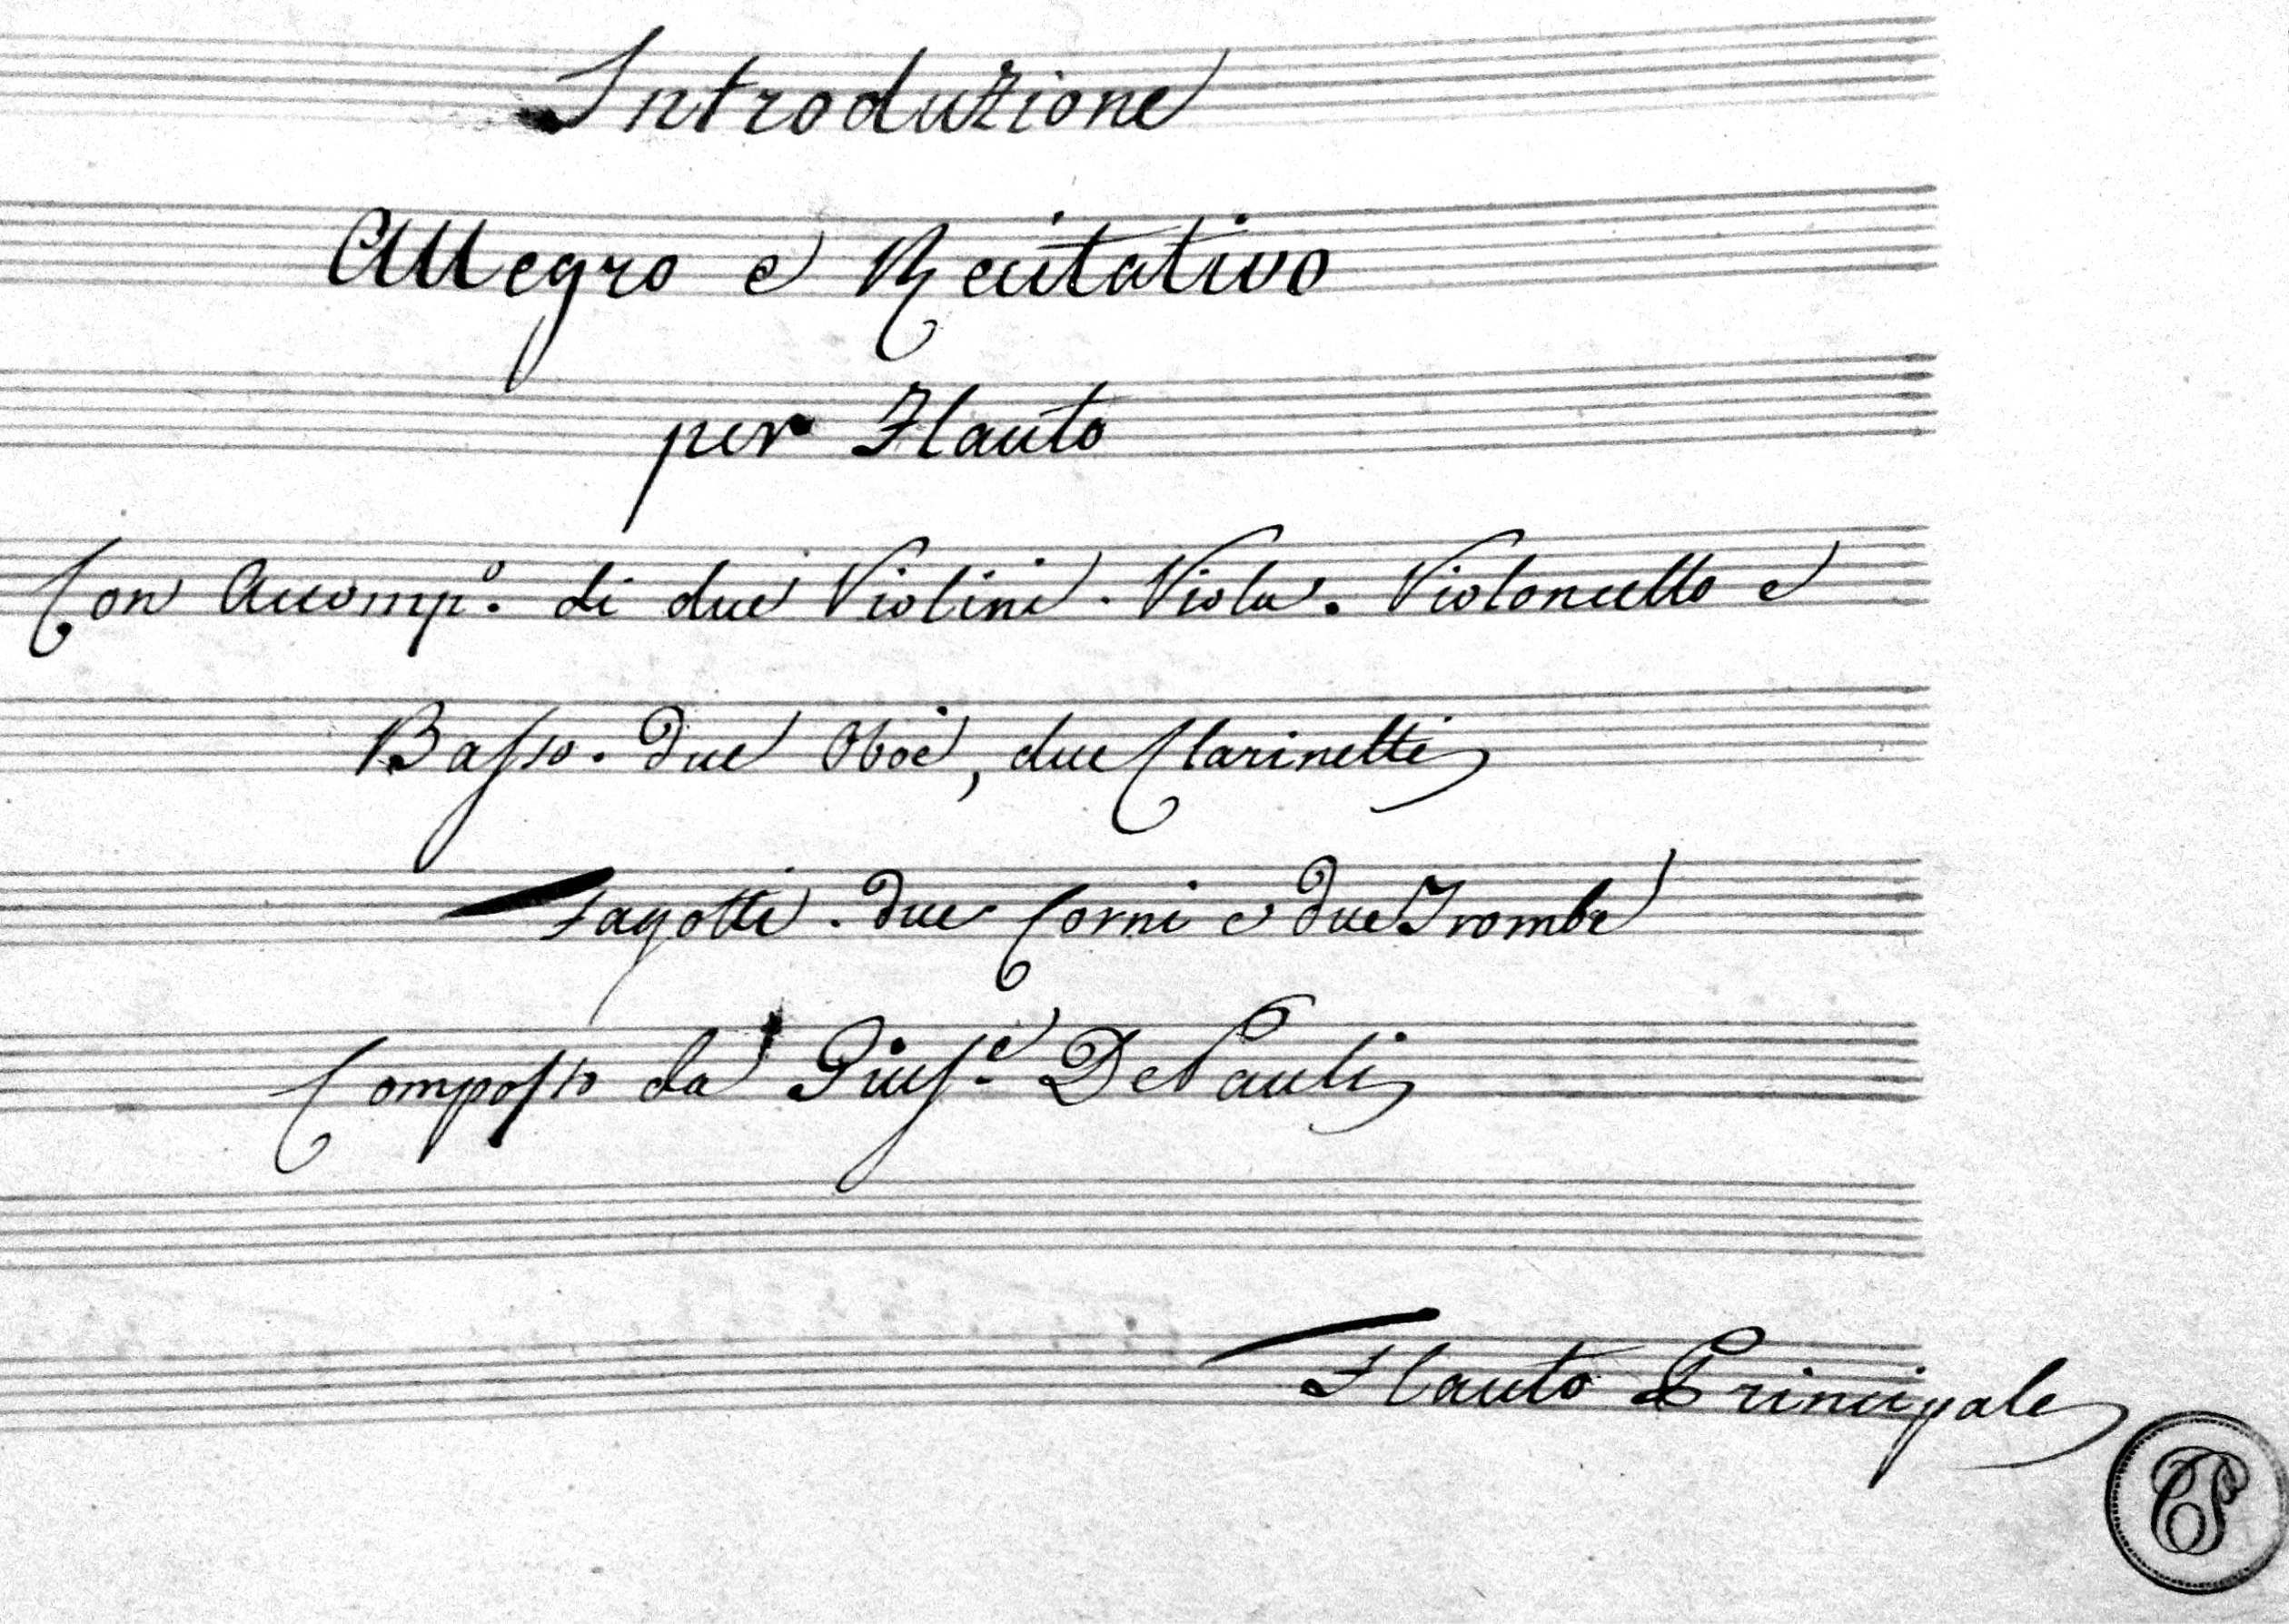 Introduzione
Allegro e Recitativo
per Flauto
Con Accomp.º di due Violini. Viola. Violoncello e
Basso. Due Oboè, due Clarinetti
Fagotti. Due Corni e due Trombe
Composto da Gius.e De Pauli
Flauto Principale